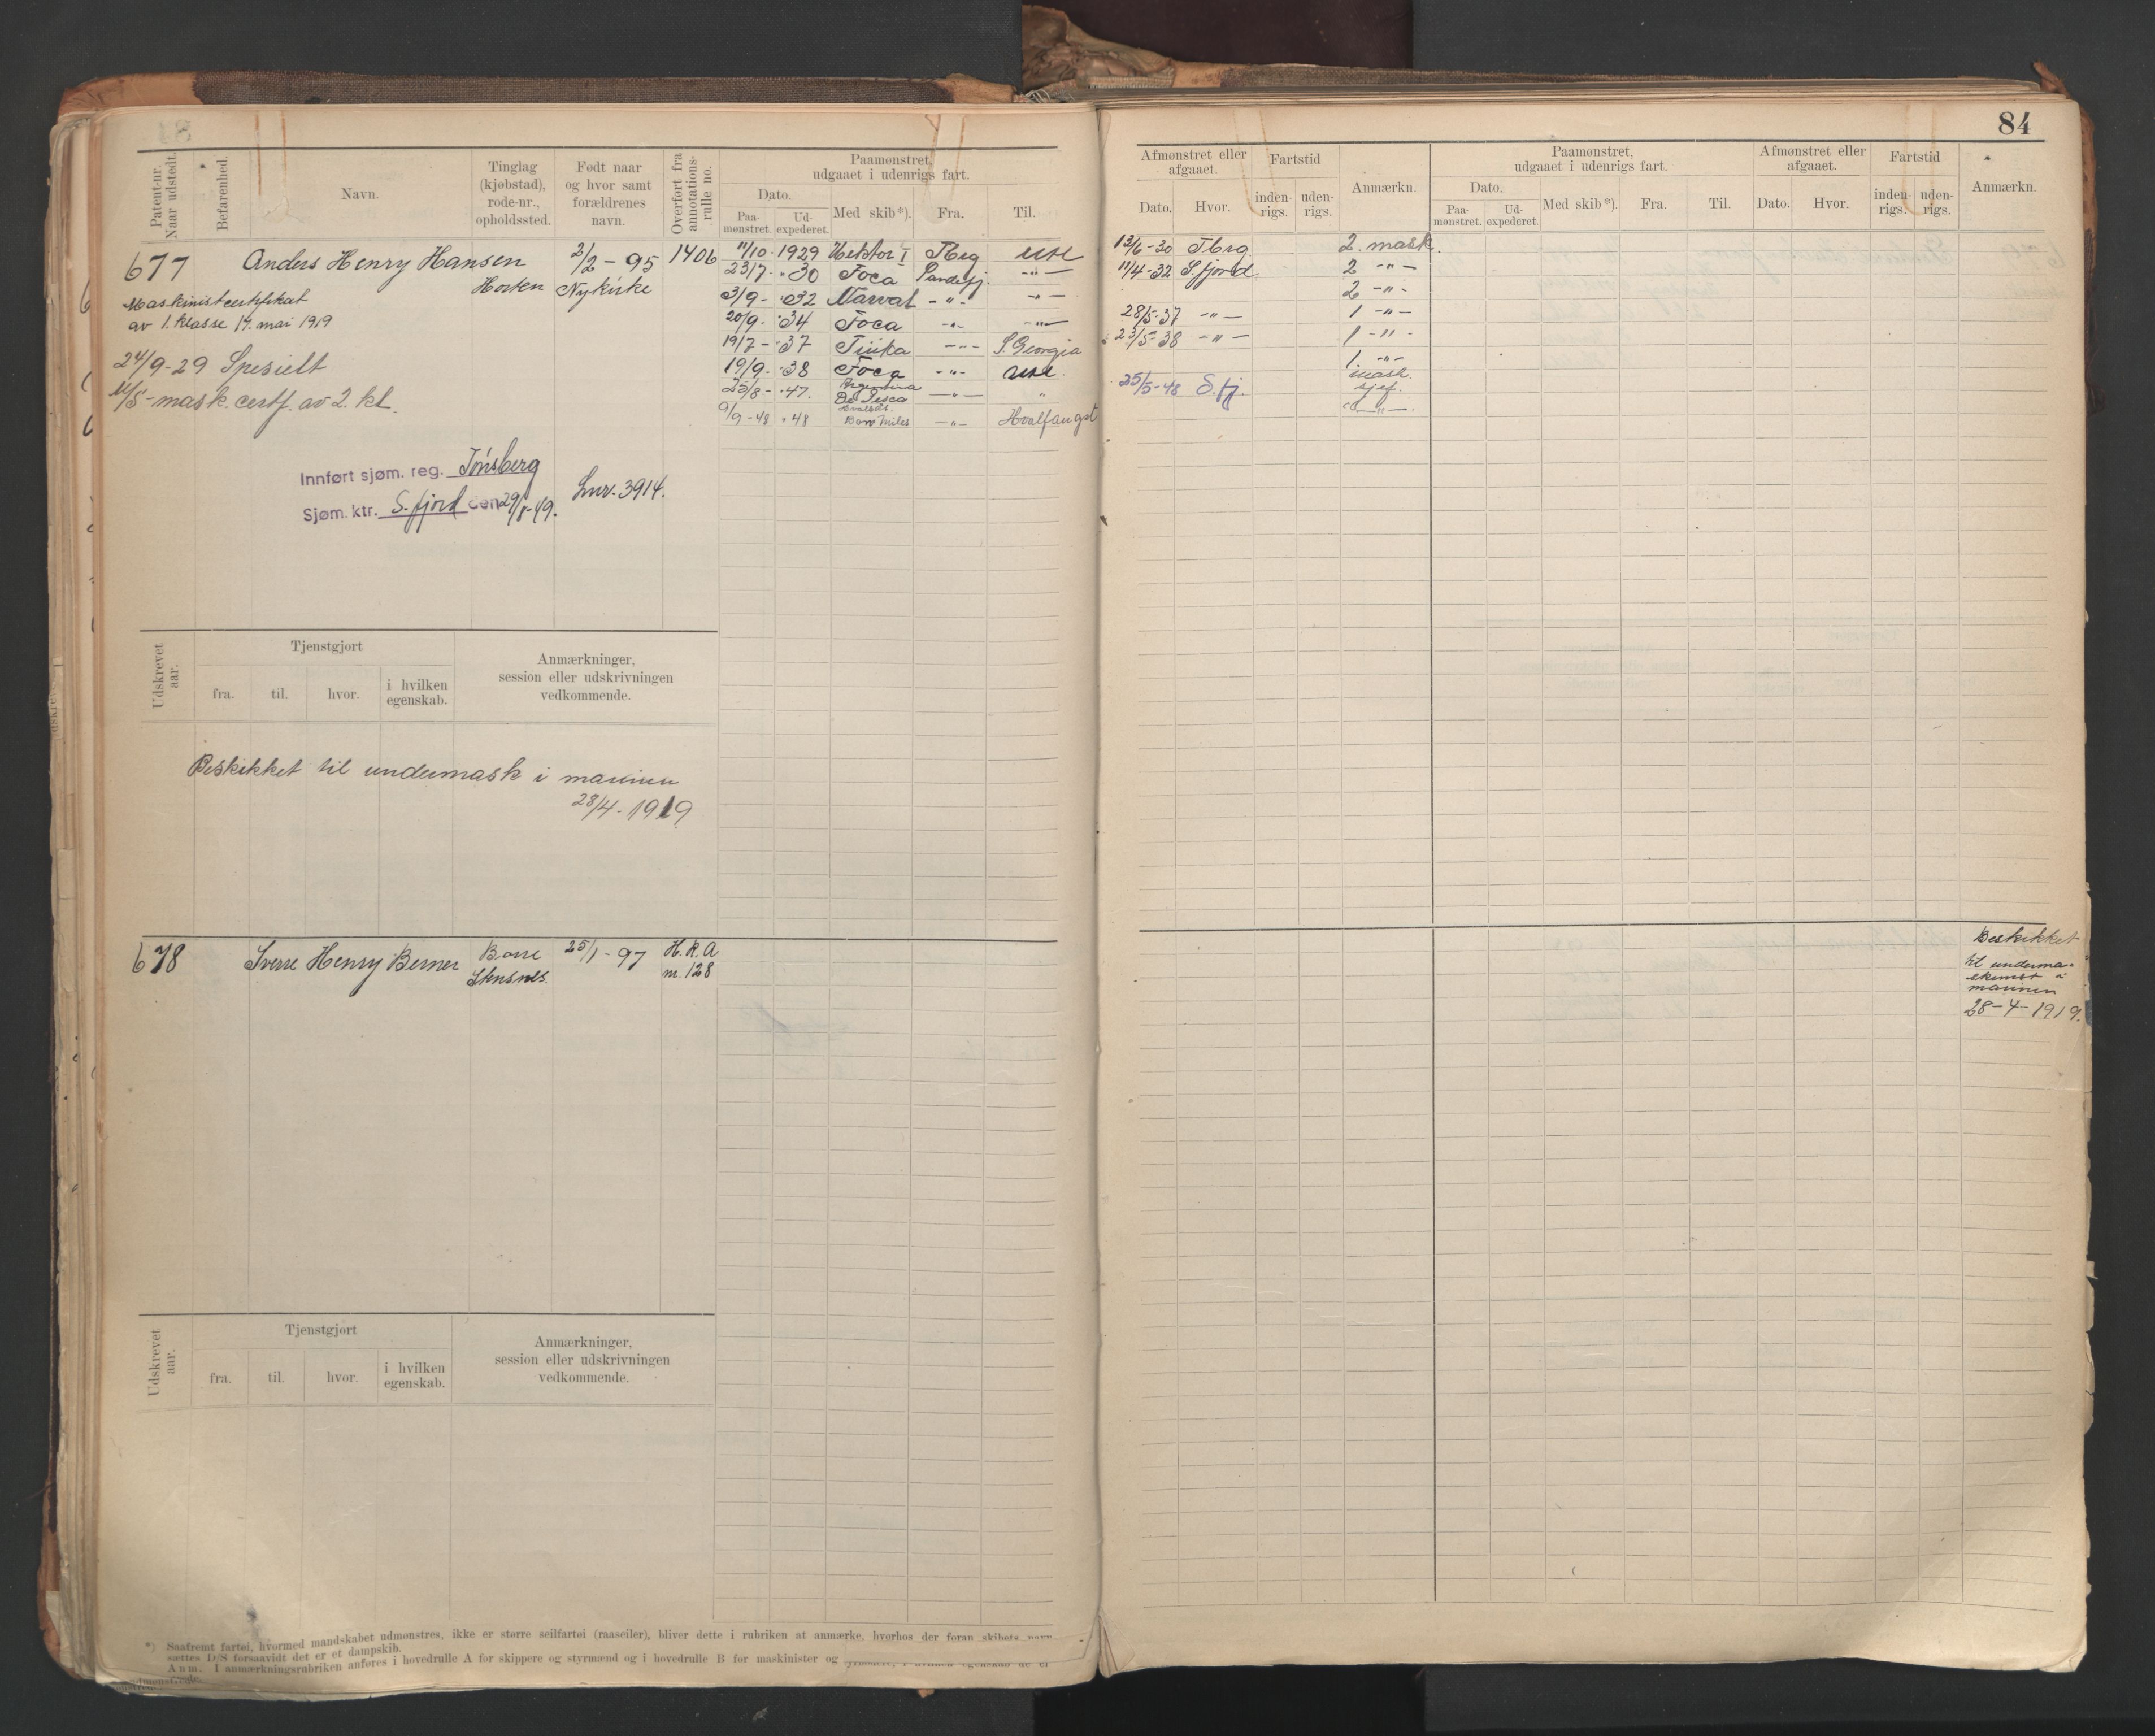 84
Patent-nr. Naar udstedt.
Befarenhed.
Navn.
Tinglag (kjøbstad), rode-nr., opholdssted.
Født naar og hvor samt forældrenes navn.
Overført fra annotations-rulle no.
Paamønstret, udgaaet i udenrigs fart.
Dato.
Paa-mønstret.
Ud-expederet.
Med skib*).
Fra.
Til.
Afmønstret eller afgaaet.
Dato.
Hvor.
Fartstid
inden-rigs.
uden-rigs.
Anmærkn.
Paamønstret, udgaaet i udenrigs fart.
Dato.
Paa-mønstret.
Ud-expederet.
Med skib*).
Fra.
Til.
Afmønstret eller afgaaet.
Dato.
Hvor.
Fartstid
inden-rigs.
uden-rigs.
Anmærkn.
677 Anders Henry Hansen Horten 2/2 - 95 Nykirke 1406
Maskinistcertifikat
av 1. klasse 17. mai 1919
24/9-29 Spesielt
11/5 - mask. certf. av 2. kl.
11/10 1929 Hektor I Tbrg 13/6-30 Tbrg 2. mask.
23/7 - " 30 Foca Sandefj. -"- 11/4-32 S.fjord 2 -"-
3/9 - " 32 Narval -"- -"- 2 -"-
20/9 - " 34 Foca -"- -"- 28/5-37 -"- 1 -"-
19/7 - " 37 -"- S. Georgia 23/5-38 -"- 1 -"-
19/9 - " 38 Foca -"- 1. -"-
25/8 - " 47. Argentina De Pesca -"- " 25/5-48 S.fj. mask. sjef.
9/9-48 " 48 -"- Hvalfangst -"-
Innført sjøm. reg. Tønsberg
Sjøm. ktr. S.fjord den 29/8-49. Lnr. 3914.
Udskrevet aar.
Tjenstgjort
fra.
til.
hvor.
i hvilken egenskab.
Anmærkninger, session eller udskrivningen vedkommende.
Beskikket til undermask i marinen
28/4-1919
678 Sverre Henry Berner Borre 25/1-97 H.R.A
nr. 128
Beskikket
til underma-
skinist i
marinen
28-4-1919.
Udskrevet aar.
Tjenstgjort
fra.
til.
hvor.
i hvilken egenskab.
Anmærkninger, session eller udskrivningen vedkommende.
*) Saafremt fartøi, hvormed mandskabet udmønstres, ikke er større seilfartøi (raaseiler), bliver dette i rubriken at anmærke, hvorhos der foran skibets navn
sættes D/S forsaavidt det er et dampskib.
Anm. I anmærkningsrubriken anføres i hovedrulle A for skippere og styrmænd og i hovedrulle B for maskinister og